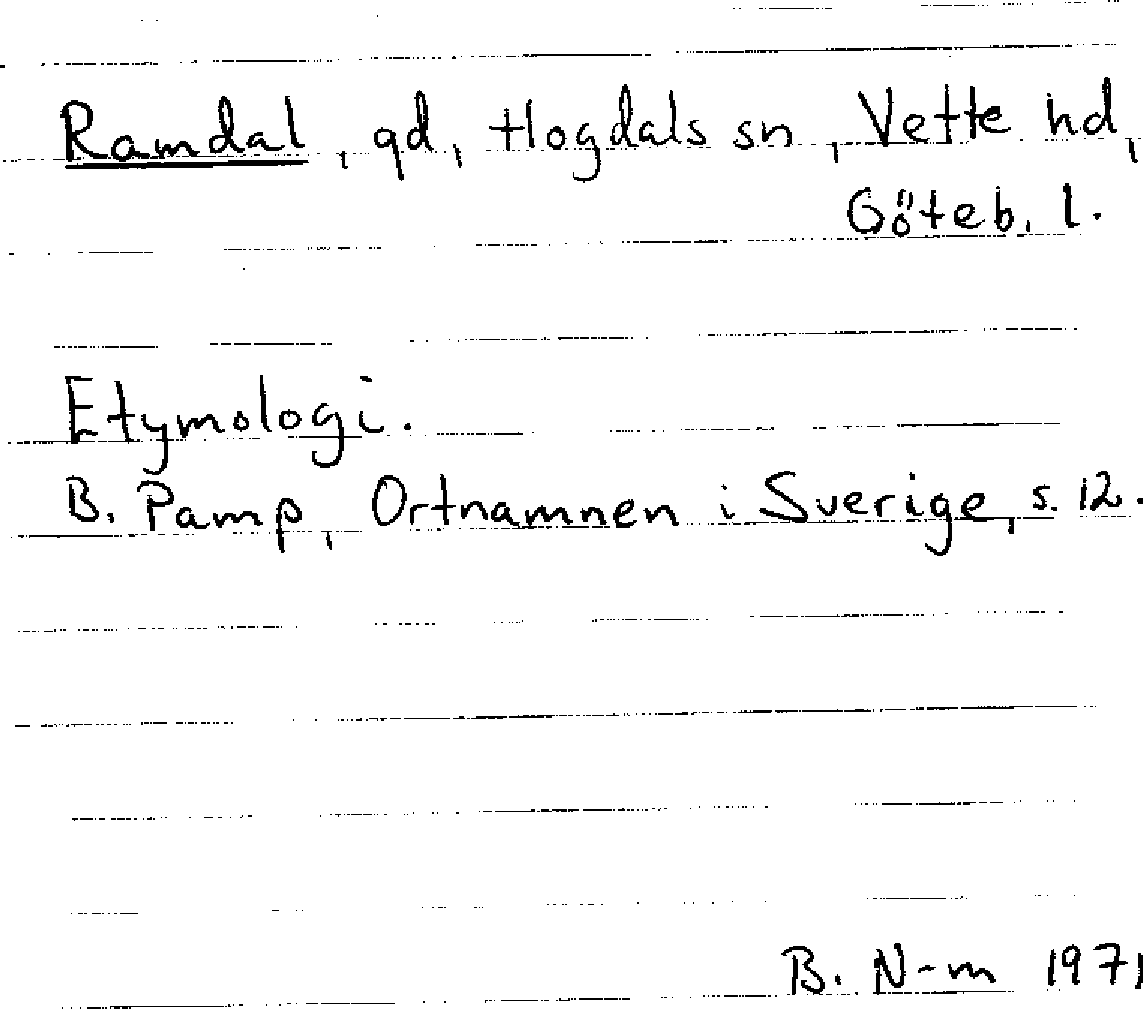 Ramdal, gd, Hogdals sn, Vette hd,
Göteb. l.
Etymologi.
B. Pamp, Ortnamnen i Sverige, s. 12.
B. N-m 1971